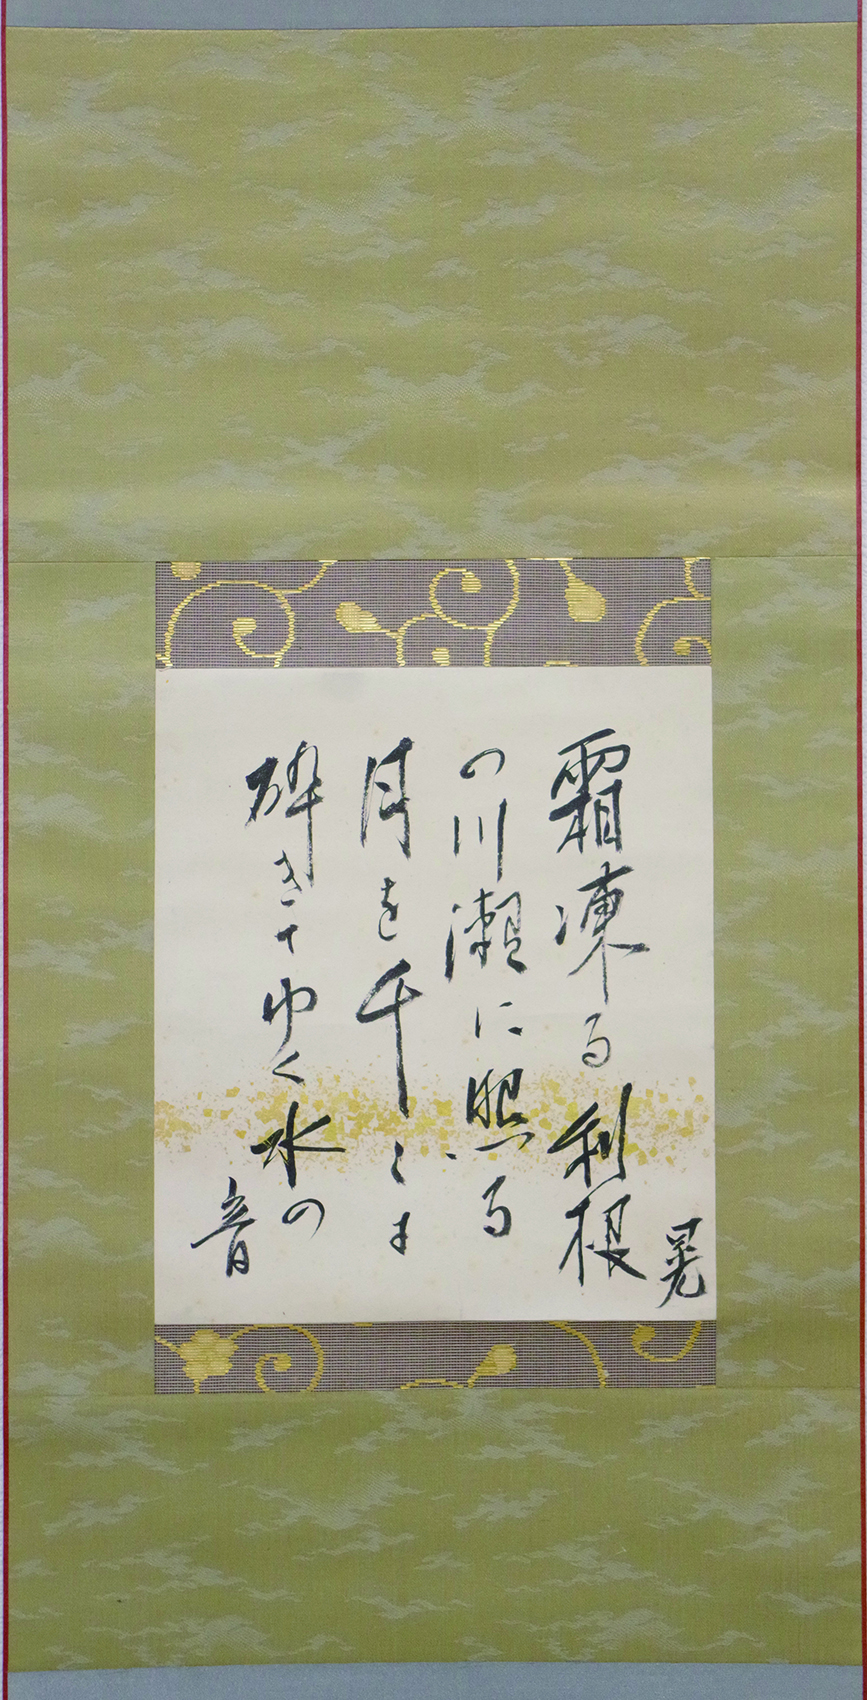 晃
霜凍る利根
の川瀬に照る
月を千々に
砕きてゆく水の
音